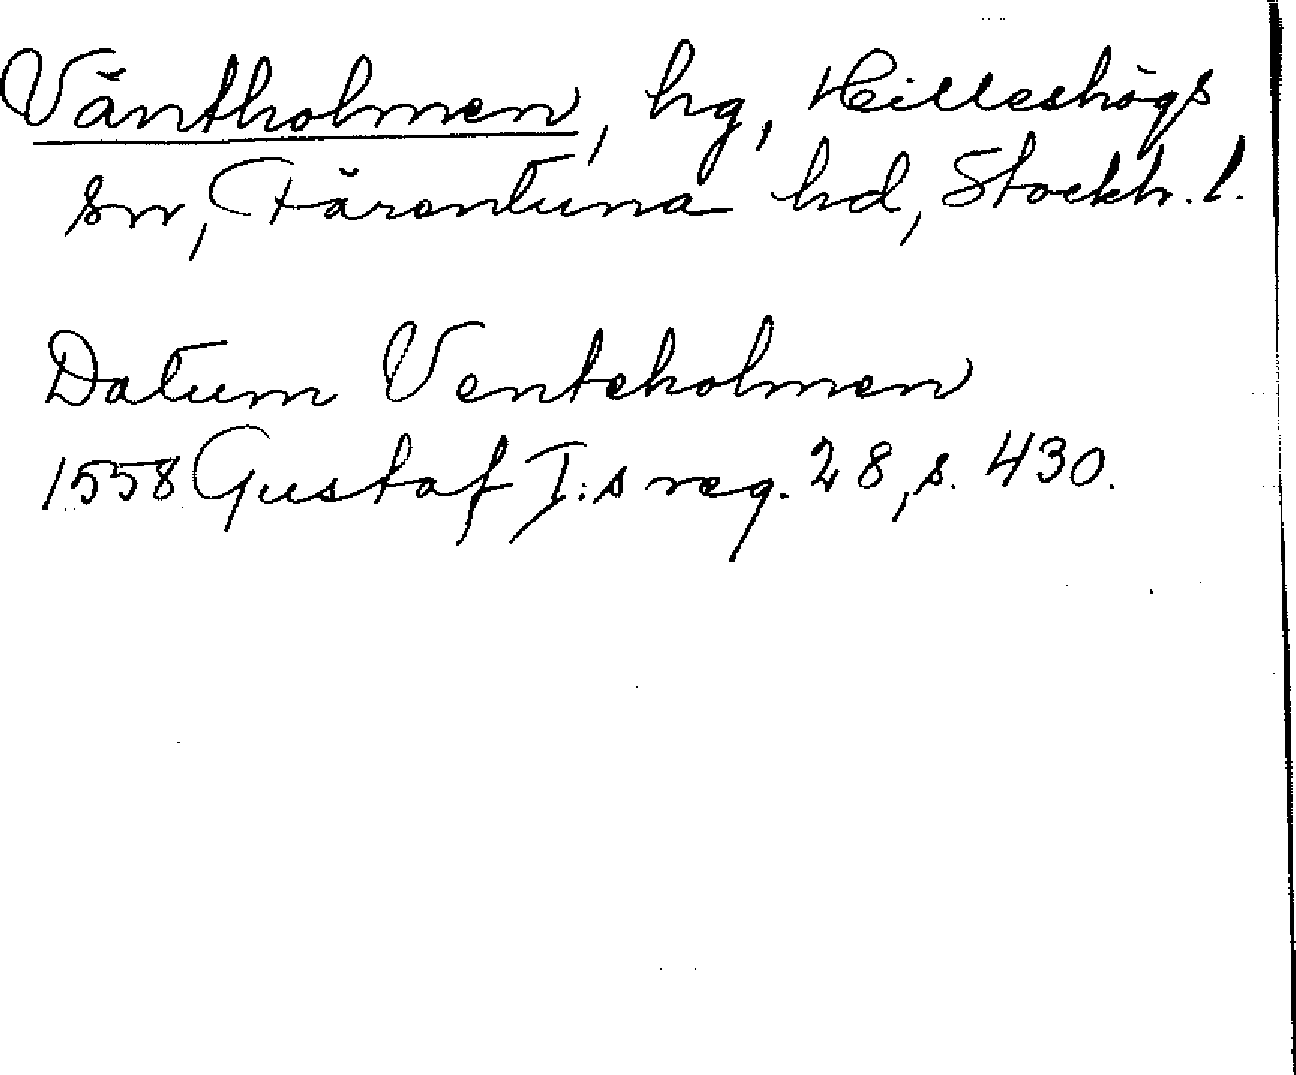 Väntholmen, hg, Hilleshögs
sn, Färentuna hd, Stockh. l.
Datum Venteholmen
1558 Gustaf I:s reg. 28, s. 430.